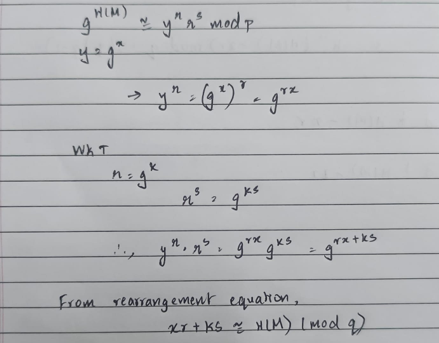 g^H(M) ≃ y^r r^s mod p
y = g^x
→ y^r = (g^x)^r = g^rx
WKT
r = g^k
r^s = g^ks
∴, y^r . r^s = g^rx g^ks = g^rx+ks
From rearrangement equation,
xr + ks ≃ H(M) (mod q)